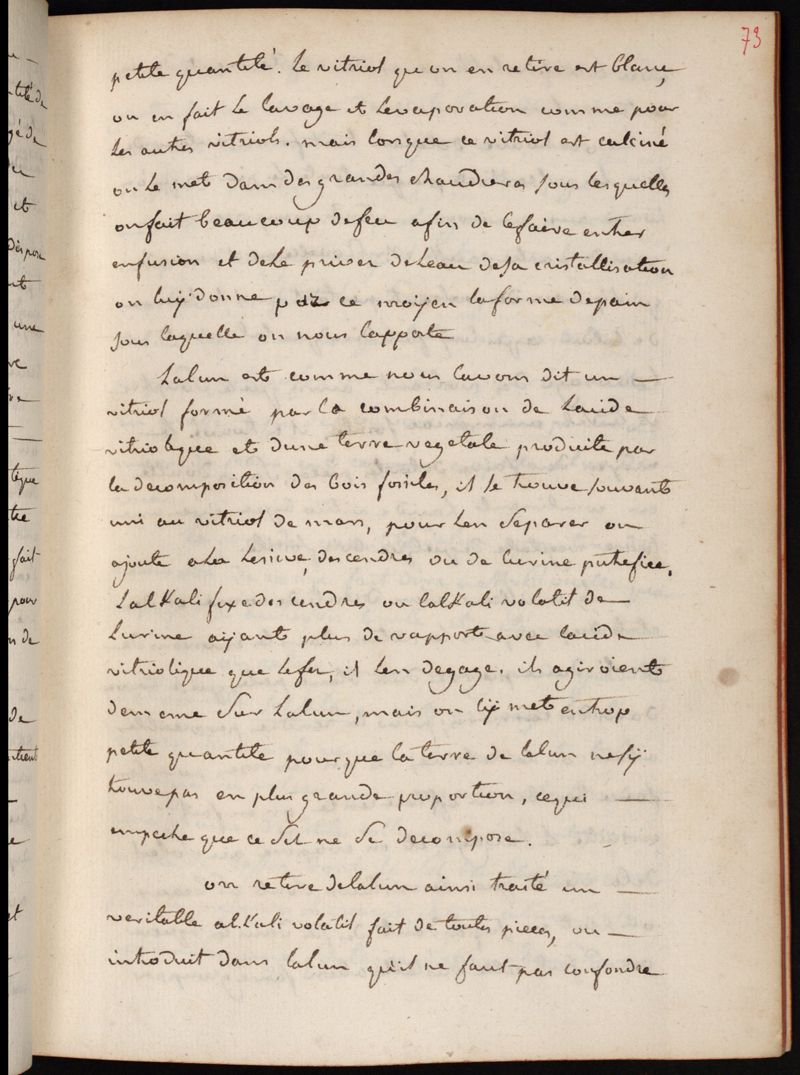 73
petite quantité. Le vitriol qu'on en retire est blanc,
on en fait le lavage et Levaporation comme pour
Les autres vitriols. mais lorsque ce vitriol est calciné
on Le met dans des grandes chaudieres sous lesquelles
on fait beaucoup defeu afin de lefaire entrer
enfusion et deLe priver deLeau desa cristallisation
on luy donne par ce moyen laforme depain
sous laquelle on nous l'apporte
Lalun est comme nous lavons dit un —
vitriol formé par la combinaison de Lacide
vitriolique et dune terre vegetale produite par
la decomposition des bois fossiles, il se trouve souvent
uni au vitriol de mars, pour Len Separer on
ajoute ala Lesive, des cendres ou de lurine putrefiee,
Lalkali fixe des cendres ou lalkali volatil de
Lurine ayant plus de rapport avec lacide
vitriolique que lefer, il Len degage. ils agiroient
dememe Sur Lalun, mais on ly met entrop
petite quantité pourque la terre de lalun nesy
trouve pas en plus grande proportion, cequi —
empeche que ce Sel ne Se decompose.
on retire delalun ainsi traité un —
veritable alkali volatil fait de toutes pieces, ou —
introduit dans lalun qu'il ne faut pas confondre